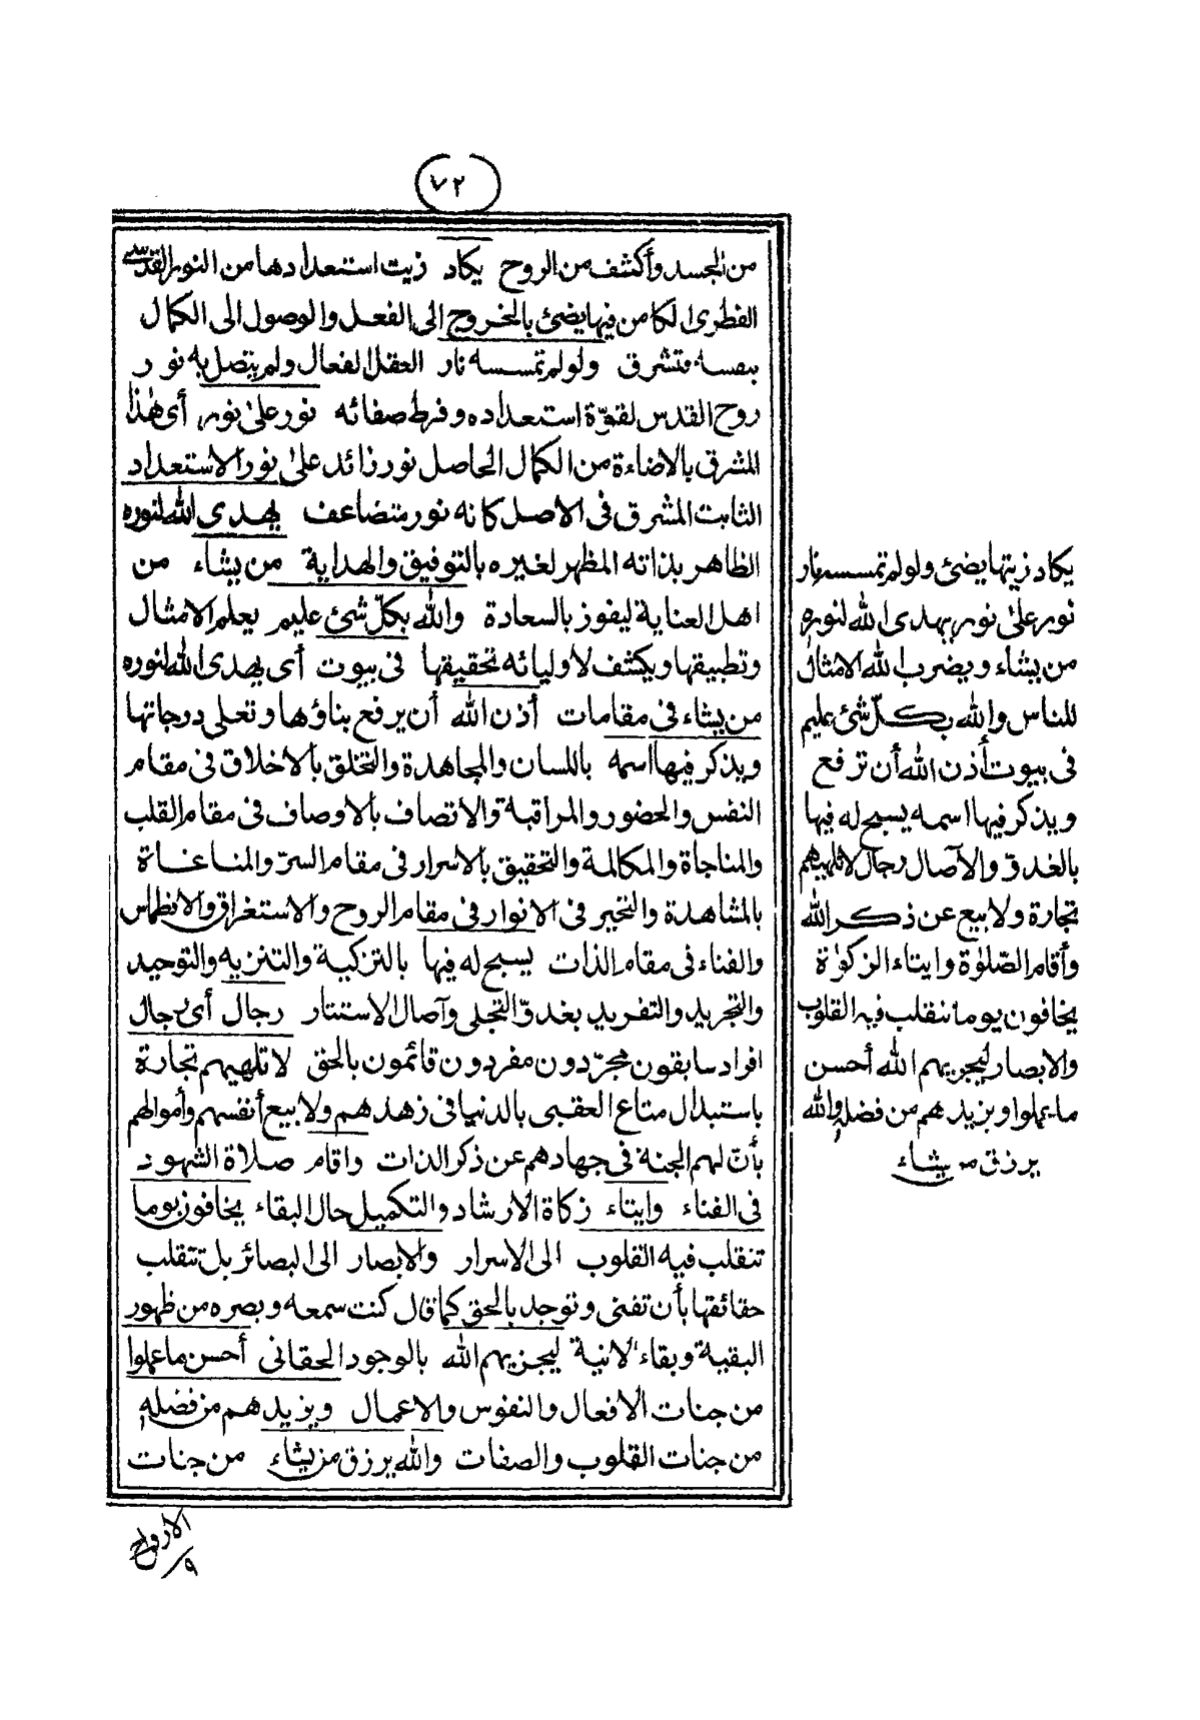 ٧٢
من الجسد وأكشف من الروح يكاد زيت استعدادها من النور القدسى
الفطرى الكامن فيها يضئ بالخروج الى الفعل والوصول الى الكمال
بنفسه فتشرق ولو لم تمسسه نار العقل الفعال ولم يتصل به نور
روح القدس لقوّة استعداده وفرط صفائه نور على نور أى هذا
المشرق بالاضاءة من الكمال الحاصل نور زائد على نور الاستعداد
الثابت المشرق فى الاصل كانه نور متضاعف يهدى الله لنوره
الظاهر بذاته المظهر لغيره بالتوفيق والهداية من يشاء من
اهل العناية ليفوز بالسعادة والله بكلّ شئ عليم يعلم الامثال
وتطبيقها ويكشف لاوليائه تحقيقها فى بيوت أى يهدى الله لنوره
من يشاء فى مقامات أذن الله أن يرفع بناؤها وتعلى درجاتها
ويذكر فيها اسمه باللسان والمجاهدة والتخلق بالاخلاق فى مقام
النفس والحضور والمراقبة والاتصاف بالاوصاف فى مقام القلب
والمناجاة والمكالمة والتحقيق بالاسرار فى مقام السرّ والمناغاة
بالمشاهدة والتحير فى الانوار فى مقام الروح والاستغراق والانطماس
والفناء فى مقام الذات يسبح له فيها بالتزكية والتنزيه والتوحيد
والتجريد والتفريد بغدوّ التجلى وآصال الاستتار رجال أى رجال
افراد سابقون مجرّدون مفردون قائمون بالحق لا تلهيهم تجارة
باستبدال متاع العقبى بالدنيا فى زهدهم ولا بيع أنفسهم وأموالهم
بأنّ لهم الجنة فى جهادهم عن ذكر الذات واقام صلاة الشهود
فى الفناء وايتاء زكاة الارشاد والتكميل حال البقاء يخافون يوما
تنقلب فيه القلوب الى الاسرار والابصار الى البصائر بل تتقلب
حقائقها بأن تفنى وتوجد بالحق كما قال كنت سمعه وبصره من ظهور
البقية وبقاء الانية ليجزيهم الله بالوجود الحقانى أحسن ما عملوا
من جنات الافعال والنفوس والاعمال ويزيدهم من فضله
من جنات القلوب والصفات والله يرزق من يشاء من جنات
يكاد زيتها يضئ ولو لم تمسسه نار
نور على نور يهدى الله لنوره
من يشاء ويضرب الله الامثال
للناس والله بكلّ شئ عليم
فى بيوت أذن الله أن ترفع
ويذكر فيها اسمه يسبح له فيها
بالغدوّ والآصال رجال لا تلهيهم
تجارة ولا بيع عن ذكر الله
وأقام الصّلوٰة وايتاء الزكوٰة
يخافون يوما تنقلب فيه القلوب
والابصار ليجزيهم الله أحسن
ما عملوا ويزيدهم من فضله والله
يرزق من يشاء
الارواح
٩